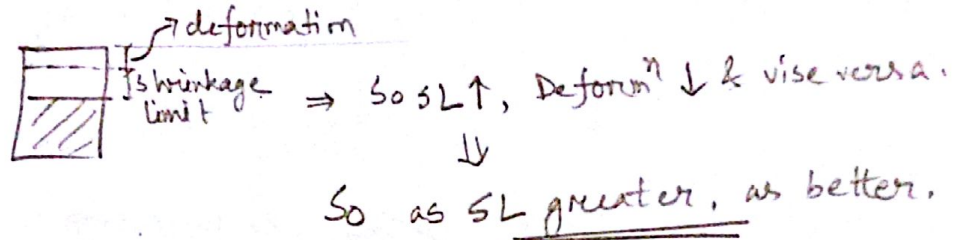 deformation
shrinkage
limit
⇒ So SL↑, Deformⁿ ↓ & vise versa.
⇓
So as SL greater, as better.